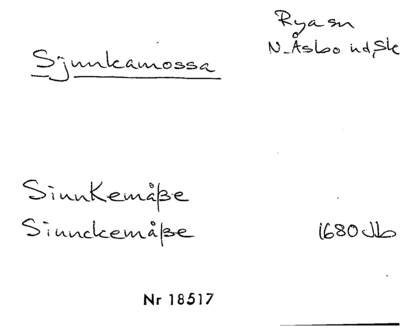 Rya sn
Sjunkamossa
N. Åsbo hd, Sk
SinnKemåße
Sinnckemåße 1680 Jb
Nr 18517